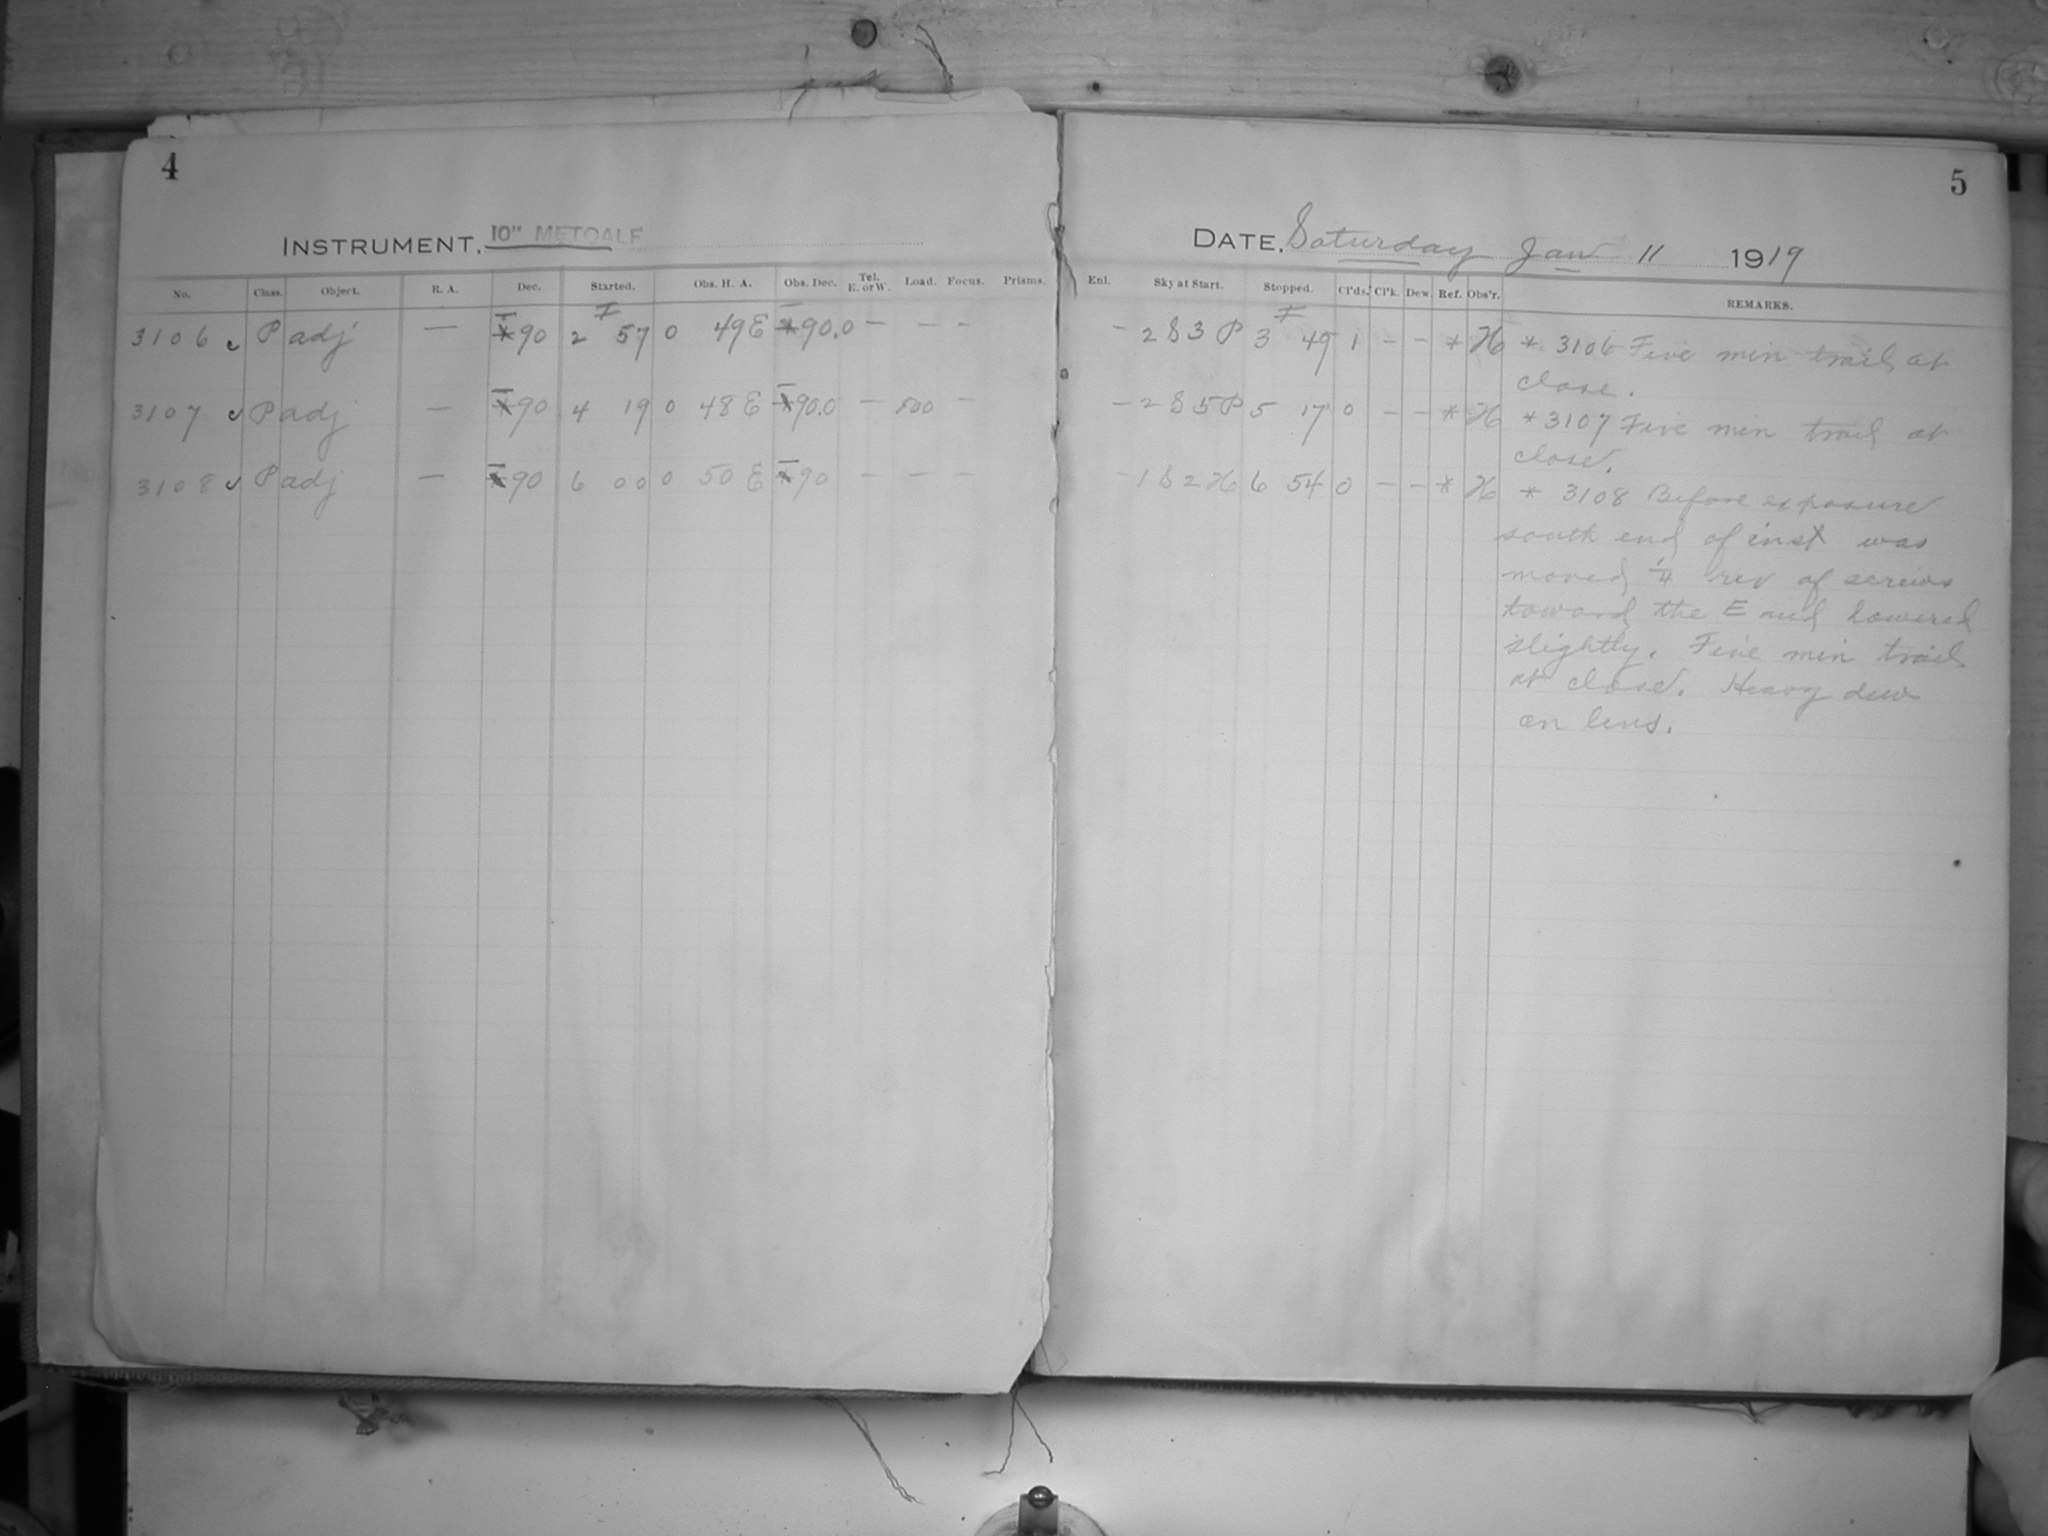 4
INSTRUMENT, 10" METCALF
No. Class. Object. R. A. Dec. Started. Obs. H. A. Obs. Dec. Tel. E. or W. Load. Focus. Prisms.
3106 P adj — 90 2 57 0 49 E 90.0 — — —
3107 P adj — 90 4 19 0 48 E 90.0 — —
3108 P adj — 90 6 00 0 50 E 90 — — —
5
DATE, Saturday Jan 11 1919
Enl. Sky at Start. Stopped. Cl'ds. Cl'k. Dew. Ref. Obs'r. REMARKS.
— 2 S 3 P 3 49 1 — — * H * 3106 Five min trail at
close.
— 2 S 5 P 5 17 0 — — * H * 3107 Five min trail at
close.
— 1 S 2 H 6 54 0 — — * H * 3108 Before exposure
south end of inst was
moved 1/4 rev of screws
toward the E and lowered
slightly. Five min trail
at close. Heavy dew
on lens.